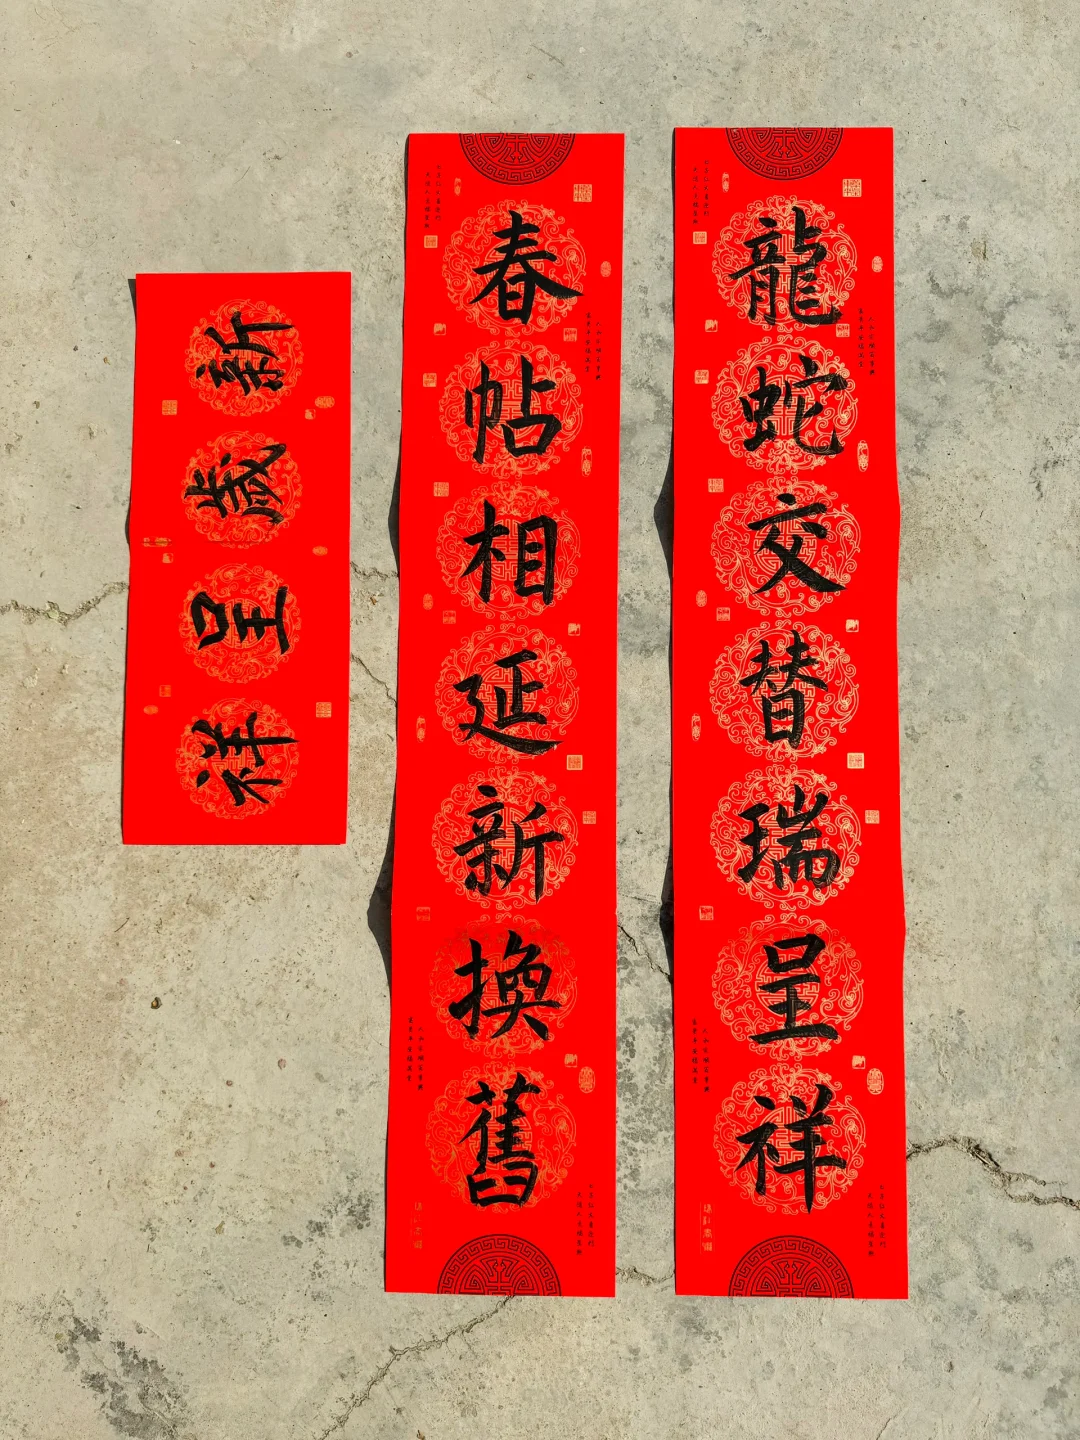 龍蛇交替瑞呈祥
春帖相延新換舊
新歲呈祥